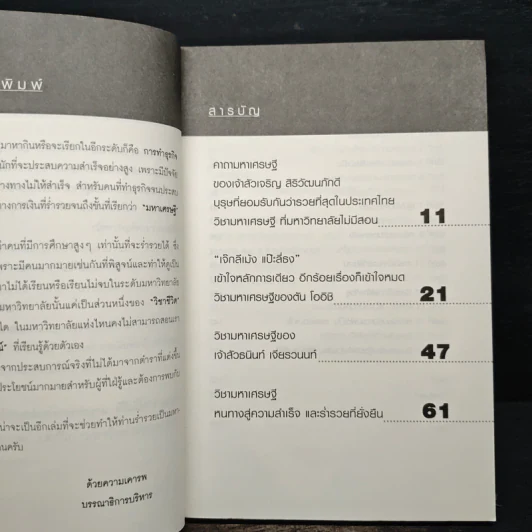 พิมพ์
มาหากินหรือจะเรียกในอีกระดับก็คือ การทำธุรกิจ
นักที่จะประสบความสำเร็จอย่างสูง เพราะมีปัจจัย
างทางไม่ให้สำเร็จ สำหรับคนที่ทำธุรกิจจนประสบ
ทางการเงินที่ร่ำรวยจนถึงขั้นที่เรียกว่า "มหาเศรษฐี"
าคนที่มีการศึกษาสูงๆ เท่านั้นที่จะร่ำรวยได้ ซึ่ง
พราะมีคนมากมายเช่นกันที่พิสูจน์และทำให้ดูเป็น
าไม่ได้เรียนหรือเรียนไม่จบในระดับมหาวิทยาลัย
มหาวิทยาลัยนั้นแค่เป็นส่วนหนึ่งของ "วิชาชีวิต"
ใด ในมหาวิทยาลัยแห่งไหนคงไม่สามารถสอนเรา
ที่เรียนรู้ด้วยตัวเอง
จากประสบการณ์จริงที่ไม่ได้มาจากตำราที่แต่งขึ้น
ประโยชน์มากมายสำหรับผู้ที่ใฝ่รู้และต้องการพบกับ
น่าจะเป็นอีกเล่มที่จะช่วยทำให้ท่านร่ำรวยเป็นมหา
านครับ
ด้วยความเคารพ
บรรณาธิการบริหาร
สารบัญ
คาถามหาเศรษฐี
ของเจ้าสัวเจริญ สิริวัฒนภักดี
บุรุษที่ยอมรับกันว่ารวยที่สุดในประเทศไทย
วิชามหาเศรษฐี ที่มหาวิทยาลัยไม่มีสอน 11
"เจ๊กลีเม้ง แป๊ะลี่ธง"
เข้าใจหลักการเดียว อีกร้อยเรื่องก็เข้าใจหมด
วิชามหาเศรษฐีของตัน โออิชิ 21
วิชามหาเศรษฐีของ
เจ้าสัวธนินท์ เจียรวนนท์ 47
วิชามหาเศรษฐี
หนทางสู่ความสำเร็จ และร่ำรวยที่ยั่งยืน 61